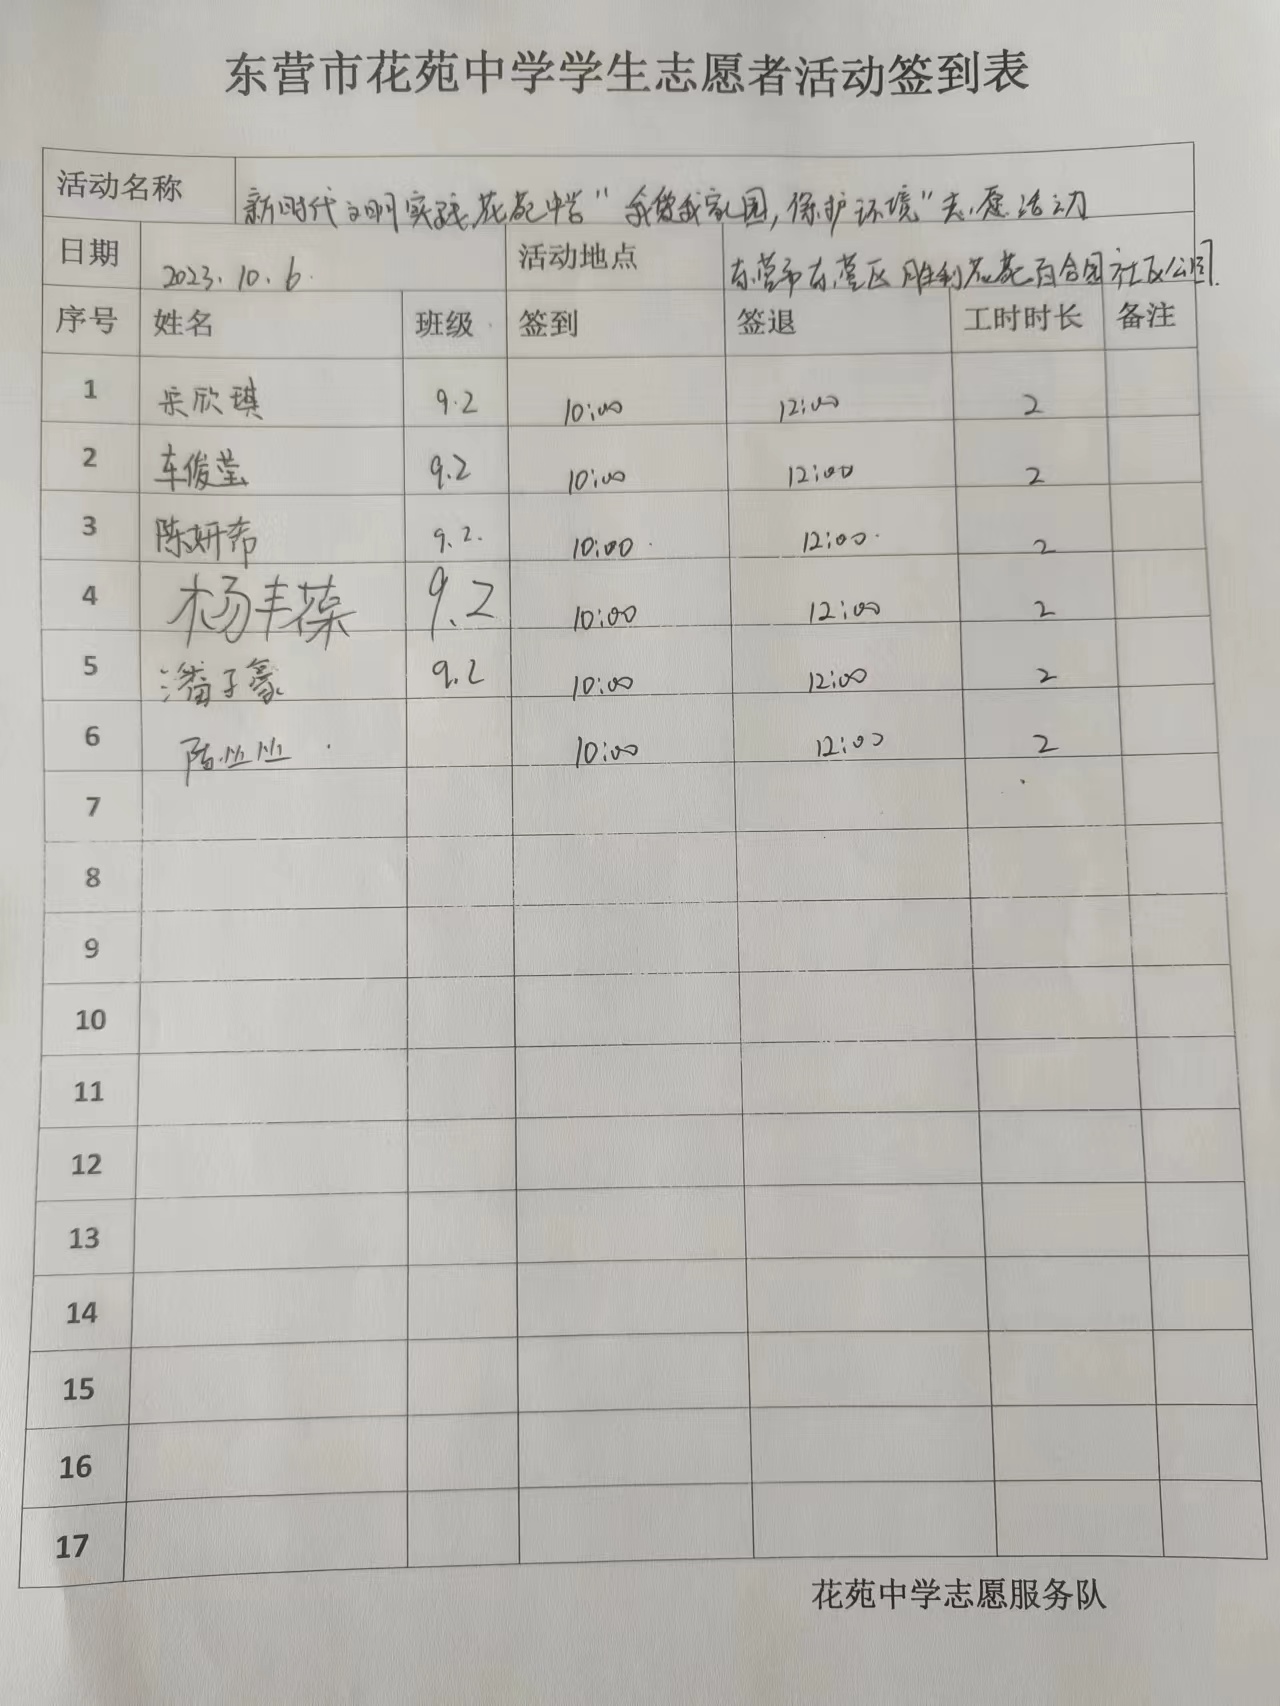 东营市花苑中学学生志愿者活动签到表
活动名称 新时代文明实践花苑中学"我爱我家园,保护环境"志愿活动
日期 2023.10.6. 活动地点 东营市东营区胜利花苑百合园社区公园.
序号 姓名 班级 签到 签退 工时时长 备注
1 宋欣琪 9.2 10:00 12:00 2
2 车俊莹 9.2 10:00 12:00 2
3 陈妍希 9.2. 10:00 12:00. 2
4 杨丰葆 9.2 10:00 12:00 2
5 潘子豪 9.2 10:00 12:00 2
6 陈丛丛 10:00 12:00 2
7
8
9
10
11
12
13
14
15
16
17
花苑中学志愿服务队